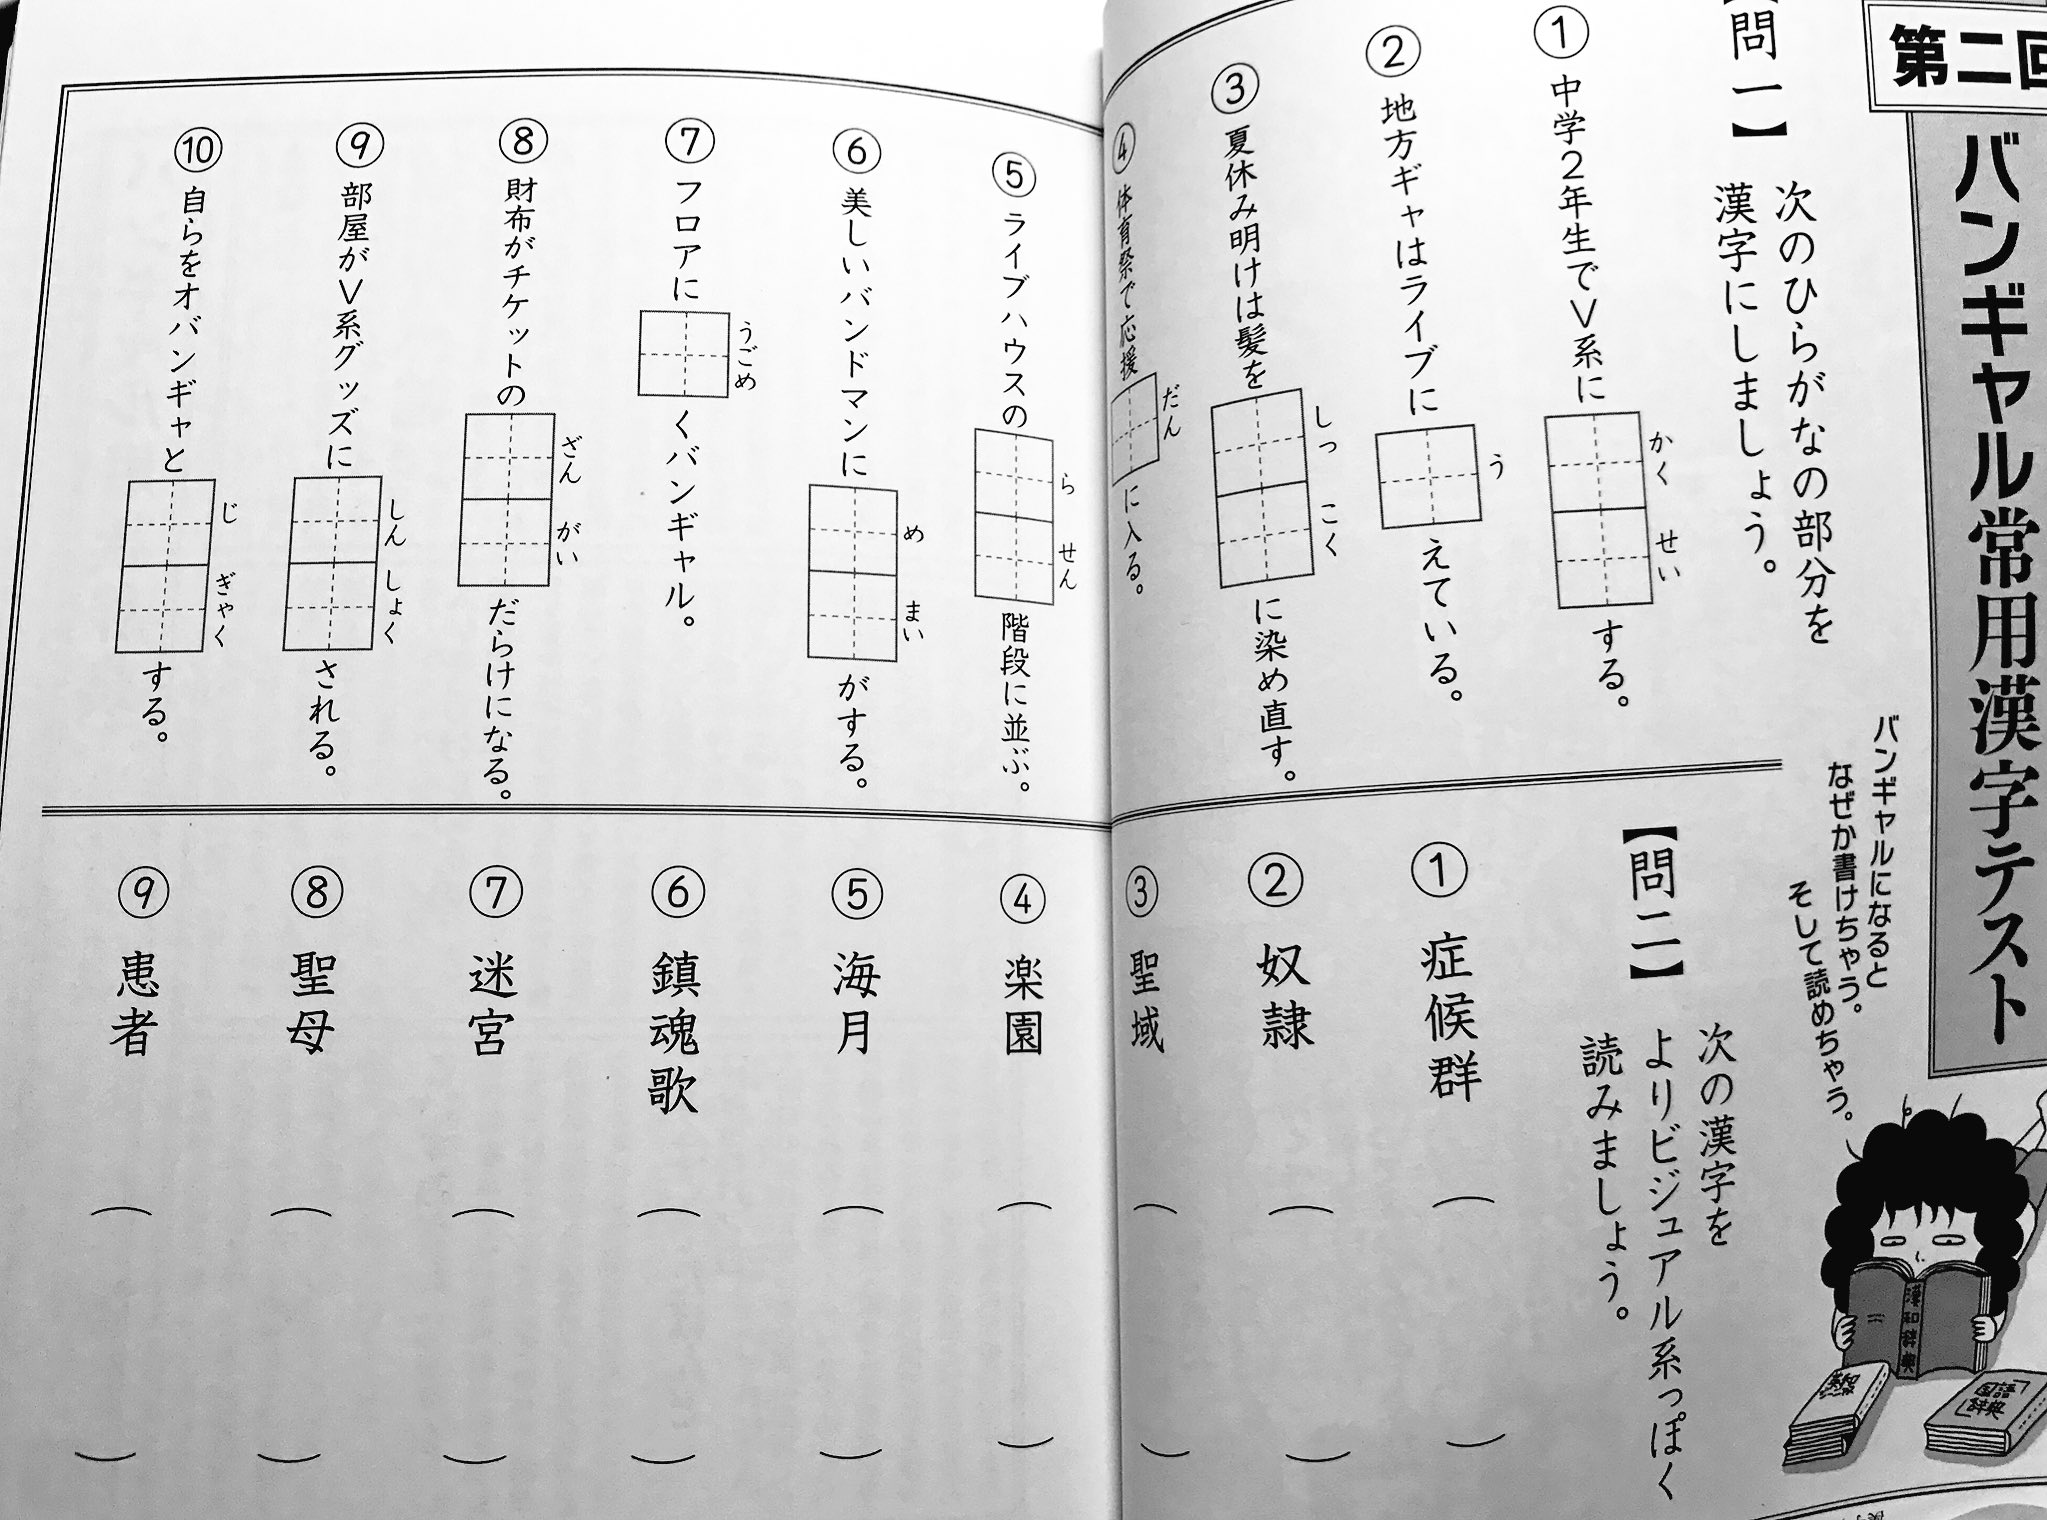 第二回
バンギャル常用漢字テスト
バンギャルになると
なぜか書けちゃう。
そして読めちゃう。
【問一】
次のひらがなの部分を
漢字にしましょう。
① 中学2年生でV系に かくせい する。
② 地方ギャはライブに う えている。
③ 夏休み明けは髪を しっこく に染め直す。
④ 体育祭で応援 だん に入る。
⑤ ライブハウスの らせん 階段に並ぶ。
⑥ 美しいバンドマンに めまい がする。
⑦ フロアに うごめ くバンギャル。
⑧ 財布がチケットの ざんがい だらけになる。
⑨ 部屋がV系グッズに しんしょく される。
⑩ 自らをオバンギャと じぎゃく する。
【問二】
次の漢字を
よりビジュアル系っぽく
読みましょう。
① 症候群 ( )
② 奴隷 ( )
③ 聖域 ( )
④ 楽園 ( )
⑤ 海月 ( )
⑥ 鎮魂歌 ( )
⑦ 迷宮 ( )
⑧ 聖母 ( )
⑨ 患者 ( )
漢和辞典
国語
辞典